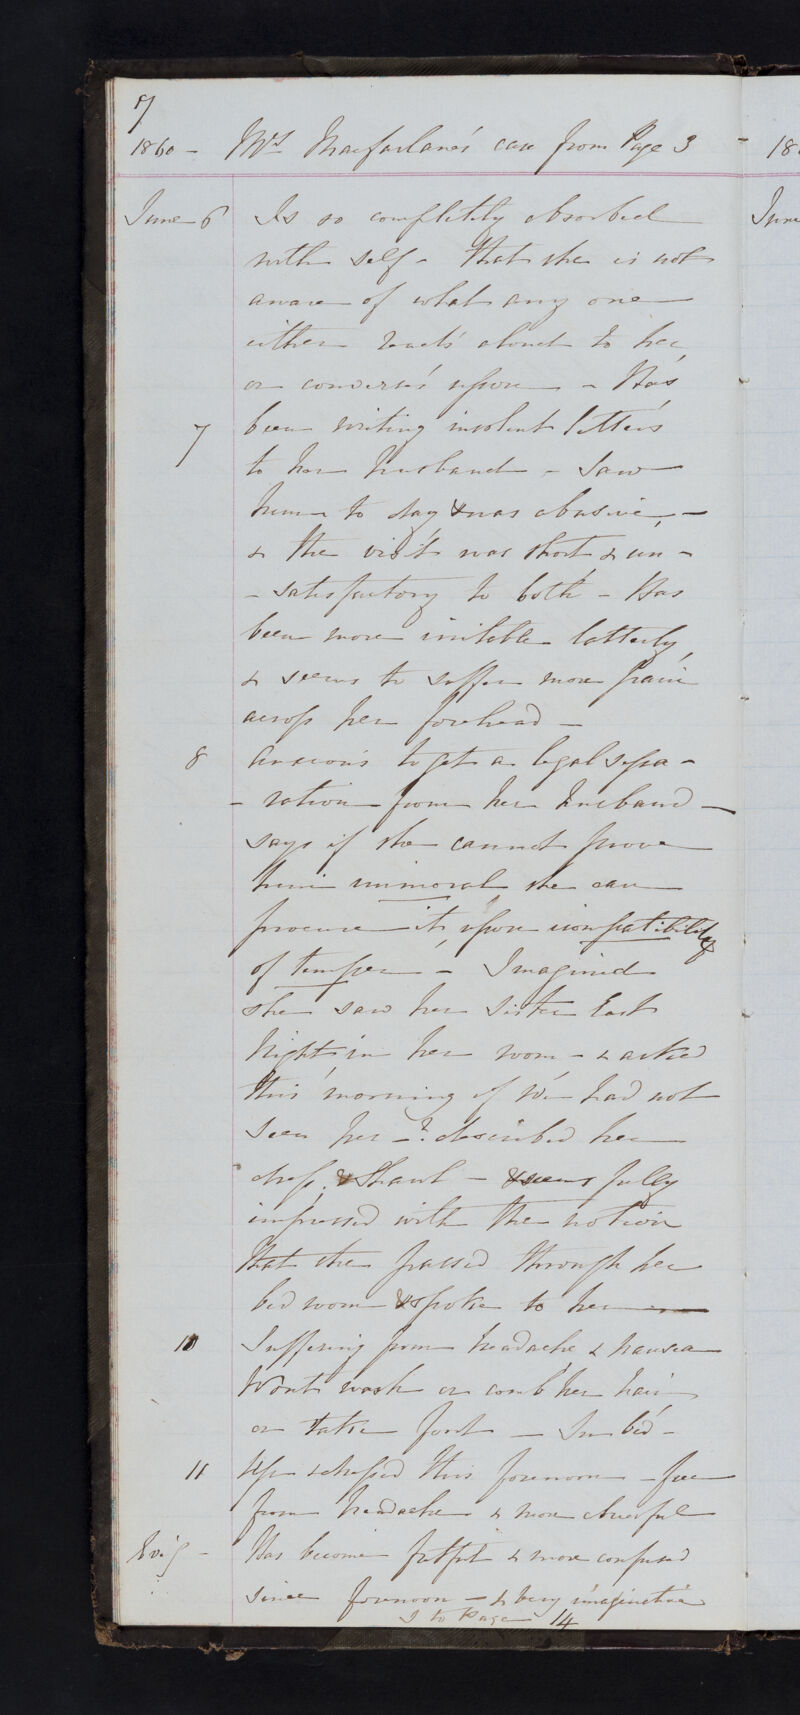 7
1860 - Mrs Macfarlane's case from Page 3 - 18
June 6 Is so completely absorbed June
with self - that she is not
aware of what any one
either reads aloud to her
or converses upon - Has
7 been writing insolent letters
to her husband - Saw
him to day & was abusive, -
& the visit was short & un -
- satisfactory to both - Has
been more irritable latterly,
& seems to suffer more pain
across her forehead -
8 Anxious to get a legal sepa -
- ration from her husband -
says if she cannot prove
him immoral she can
procure it, upon incompatibility
of temper - Imagined
she saw her sister last
night in her room - & asked
this morning if we had not
seen her -? described her
dress, & Shawl - & seems fully
impressed with the notion
that she passed through her
bed room & spoke to her -
10 Suffering from headache & nausea
Wont wash or comb her hair
or take food - In bed -
11 Up & dressed this forenoon - free
from headache & more cheerful
Ev'g - Has become fitful & more confused
since forenoon - & very imaginative
to Page 14